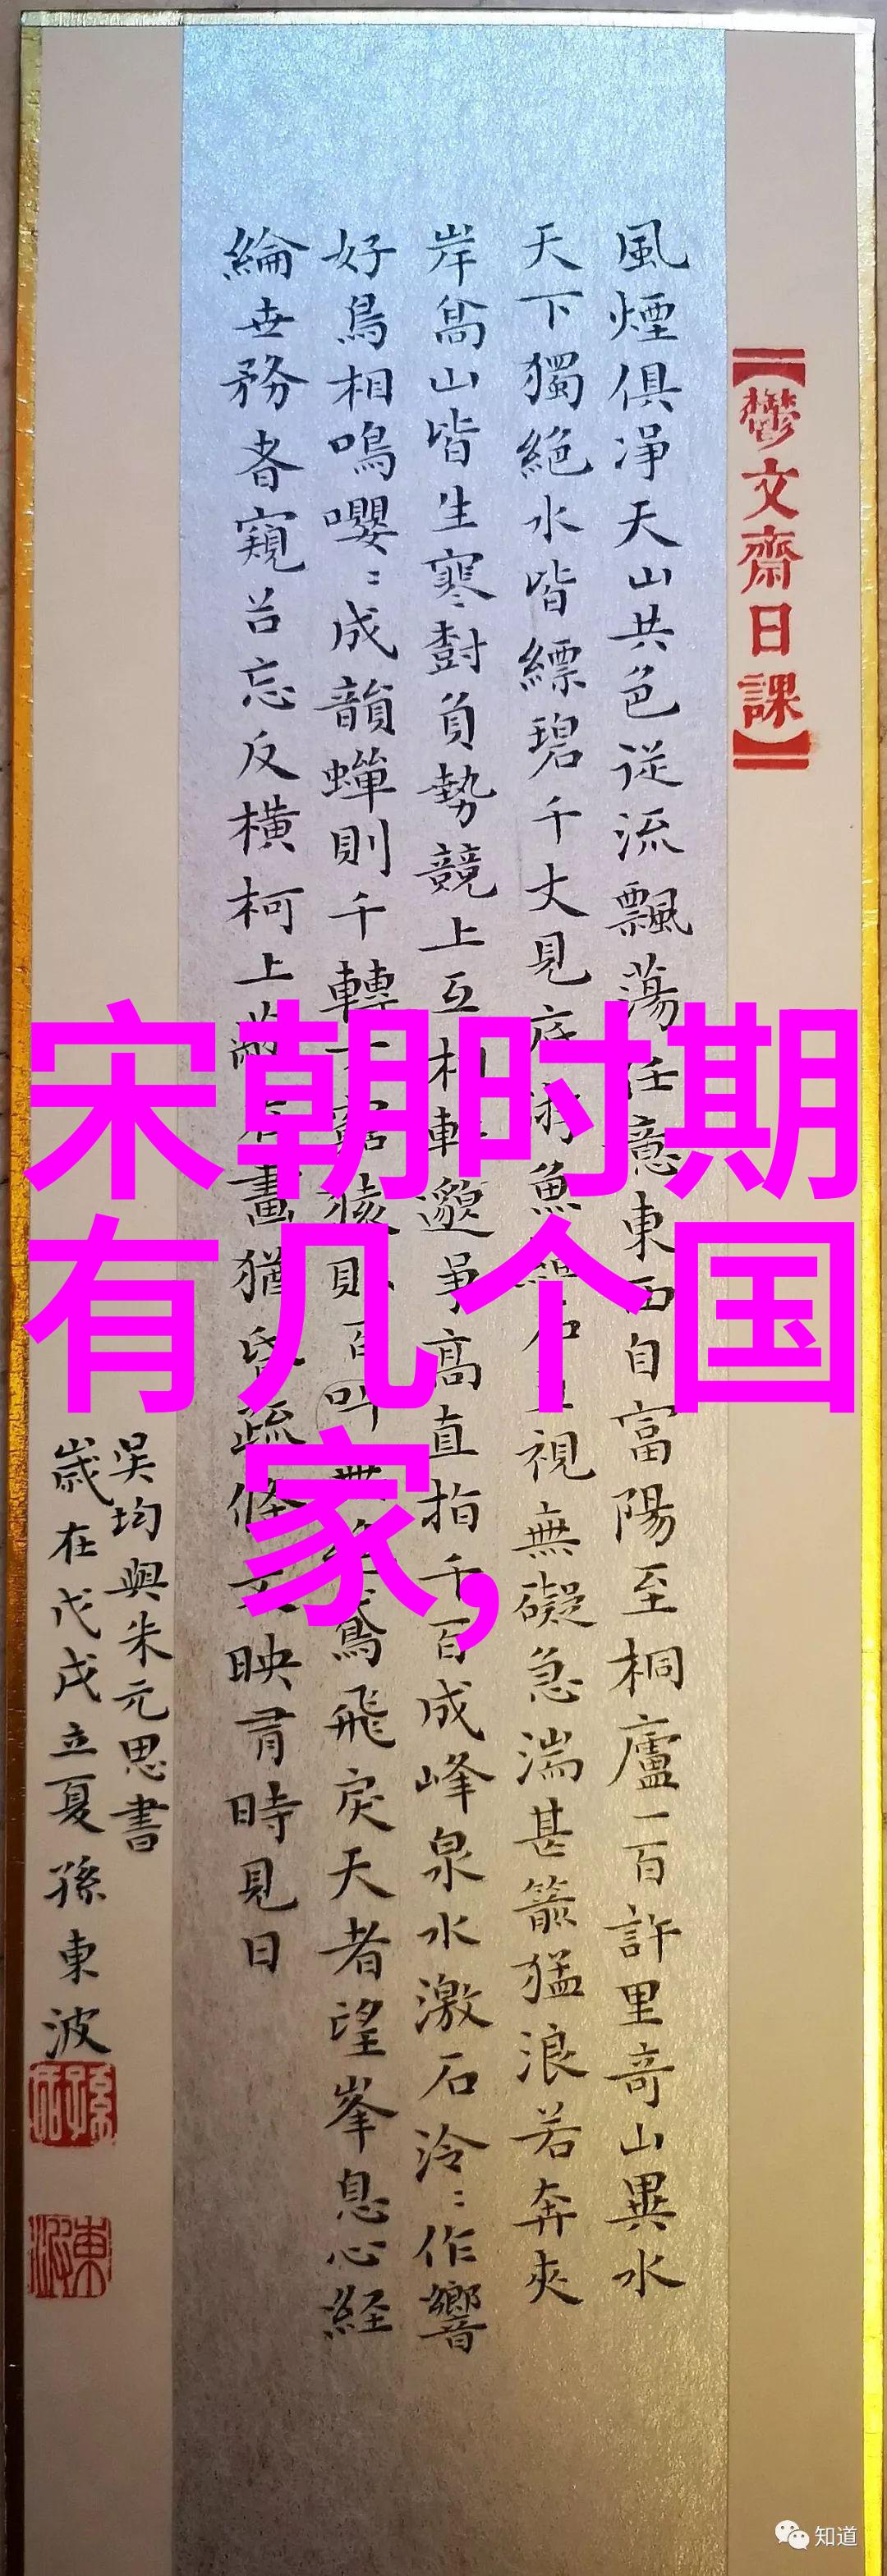 鬱文齋日課
風煙俱淨天山共色從流飄蕩任意東西自富陽至桐廬一百許里奇山異水
天下獨絕水皆縹碧千丈見底游魚細石直視無礙急湍甚箭猛浪若奔夾
岸高山皆生寒對負勢競上互相軒邈爭高直指千百成峰泉水激石泠〻作響
好鳥相鳴嚶〻成韻蟬則千轉不窮猿則百叫無絕鳶飛戾天者望峯息心経
綸世務者窺谷忘反橫柯上蔽在晝猶昏疏條交映有時見日
吳均與朱元思書
歲在戊戌立夏孫東波
宋朝时期
有几个国
家,
知道